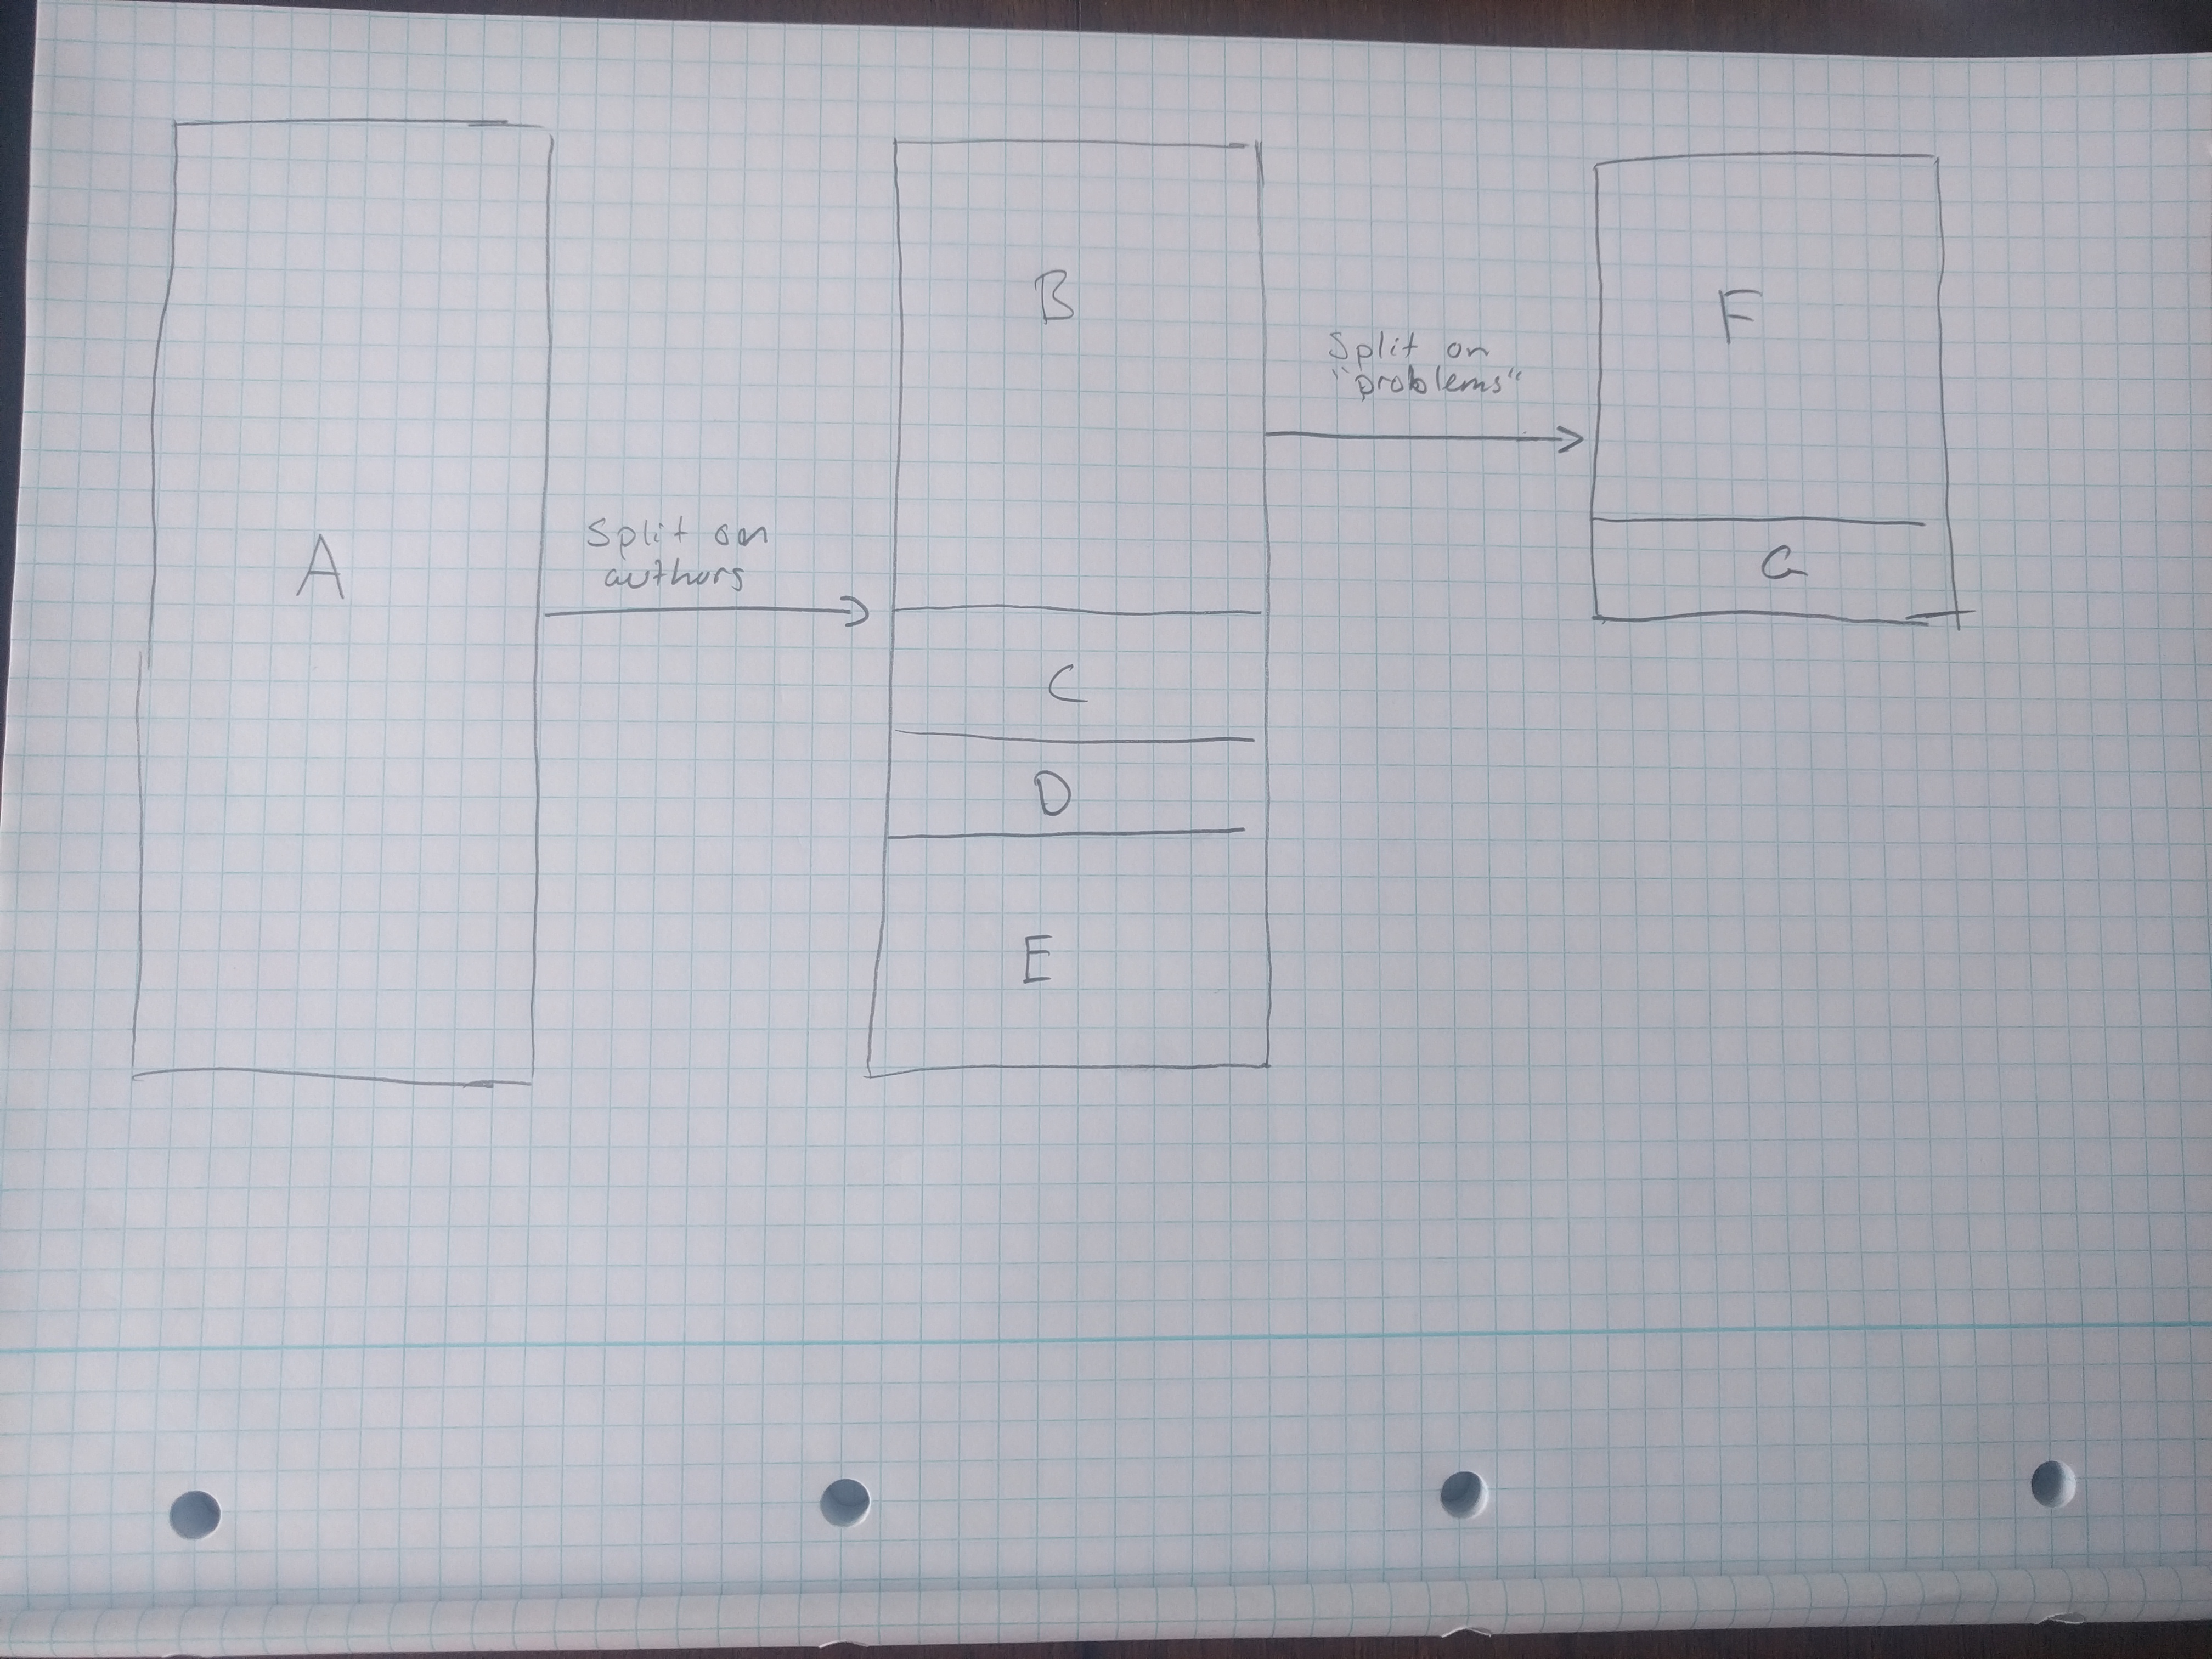 A
Split on
authors
B
C
D
E
Split on
"problems"
F
G